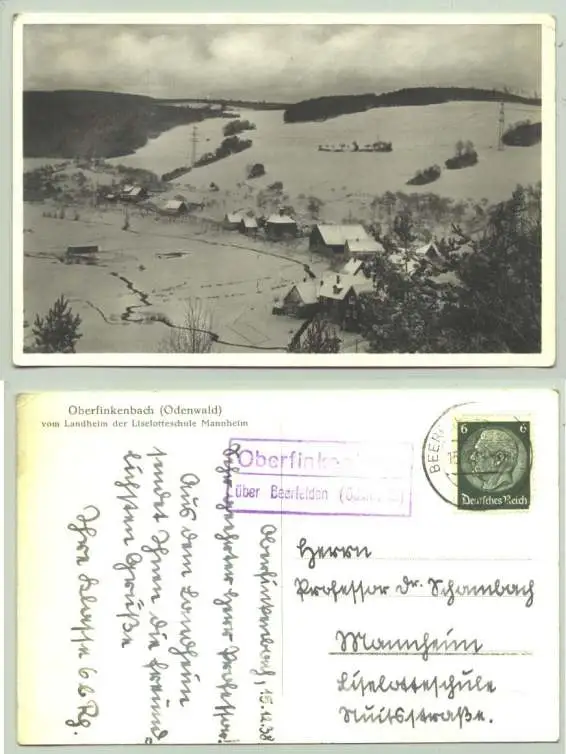 Oberfinkenbach (Odenwald)
vom Landheim der Liselotteschule Mannheim
Oberfinken
über Beerfelden
BEER
6 6
Deutsches Reich
Oberfinkenbach, 15.12.38
Sehr geehrter Herr Professor.
Aus dem Landheim
sendet Ihnen die freund-
lichsten Grüße
Ihre Klasse 6b Rg.
Herrn
Professor Dr. Schambach
Mannheim
Liselotteschule
Nuitsstraße.